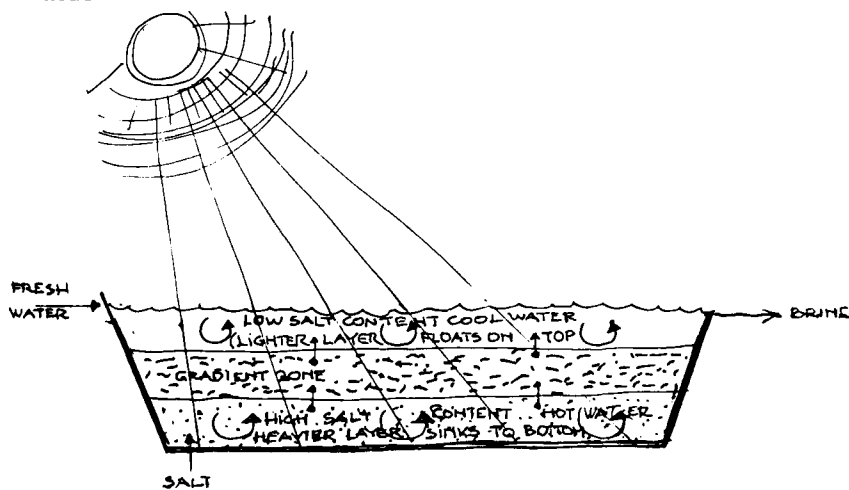 FRESH
WATER
LOW SALT CONTENT COOL WATER
(LIGHTER LAYER FLOATS ON TOP
GRADIENT ZONE
HIGH SALT CONTENT HOT WATER
HEAVIER LAYER SINKS TO BOTTOM
SALT
BRINE